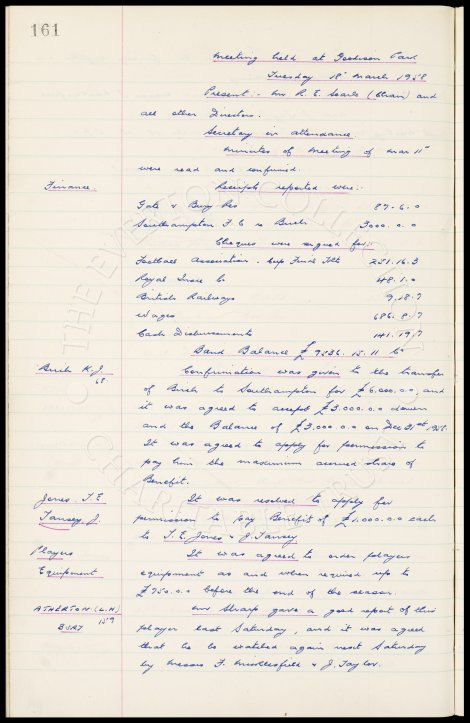 161
Meeting held at Goodison Park
Tuesday 18th March 1958
Present - Mr R. E. Searle (Chair) and
all other Directors.
Secretary in attendance
Minutes of Meeting of Mar 11th
were read and confirmed.
Finance. Receipts reported were:-
Gate & Buzz Res 27.6.0
Southampton F.C. re Birch 3000.0.0
Cheques were signed for:-
Football Association. Cup Final Tkts 251.16.3
Royal Insce Co 48.1.0
British Railways 9.18.7
Wages 686.8.7
Cash Disbursements 141.19.7
Bank Balance £9236.15.11 Cr
Birch K.J. Confirmation was given to the transfer
68
of Birch to Southampton for £6,000.0.0, and
it was agreed to accept £3.000.0.0 down
and the Balance of £3.000.0.0 on Dec 31st 1958
It was agreed to apply for permission to
pay him the maximum accrued share of
Benefit.
Jones. T.E It was resolved to apply for
Tansey J. permission to pay Benefit of £1.000.0.0 each
to T.E. Jones & J. Tansey
Players It was agreed to order players
Equipment equipment as and when required up to
£750.0.0 before the end of the season.
ATHERTON. (L.H) Mr Sharp gave a good report of this
159
BURY player last Saturday, and it was agreed
that he be watched again next Saturday
by Messrs F. Micklesfield & J. Taylor.
THE EVERTON COLLECTION
CHARITABLE TRUST